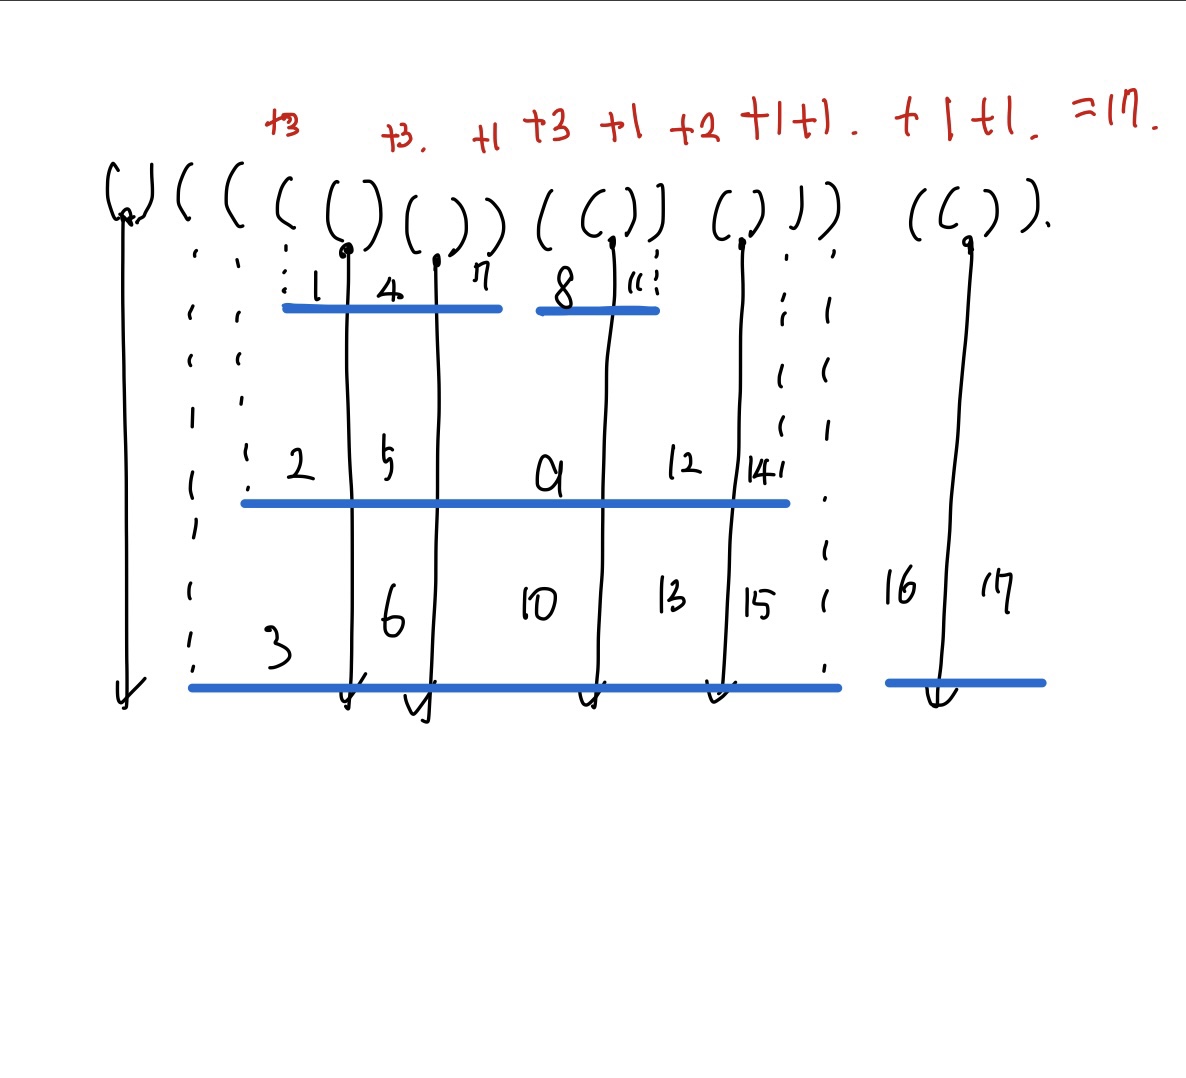 +3 +3. +1 +3 +1 +2 +1+1. +1+1. =17.
()(((()())(())())) (()).
1 4 7 8 11
2 5 9 12 14
3 6 10 13 15 16 17